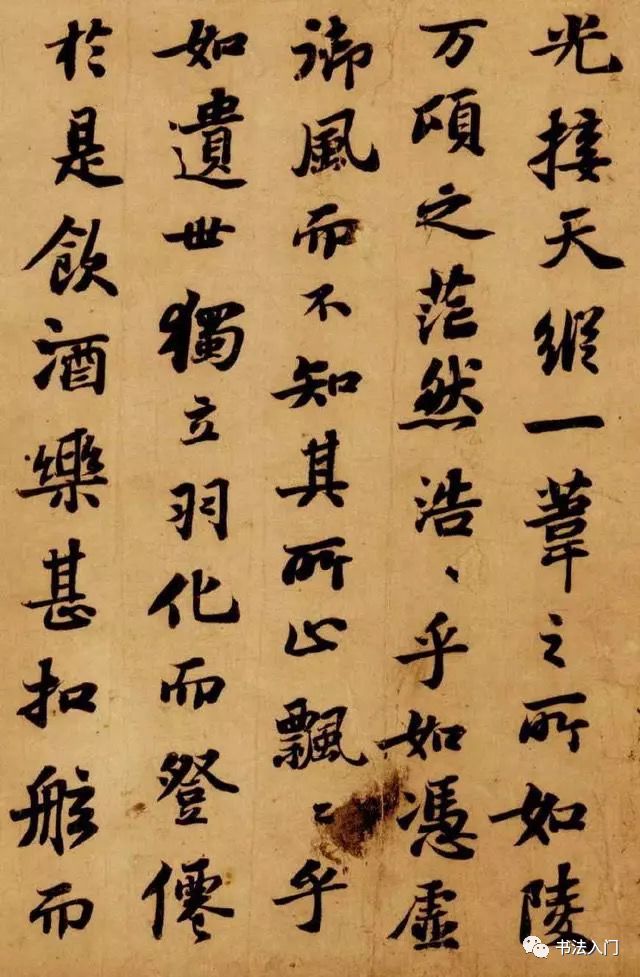 光接天縱一葦之所如陵
万頃之茫然浩〻乎如馮虛
御風而不知其所止飄〻乎
如遺世獨立羽化而登僊
於是飲酒樂甚扣舷而
书法入门